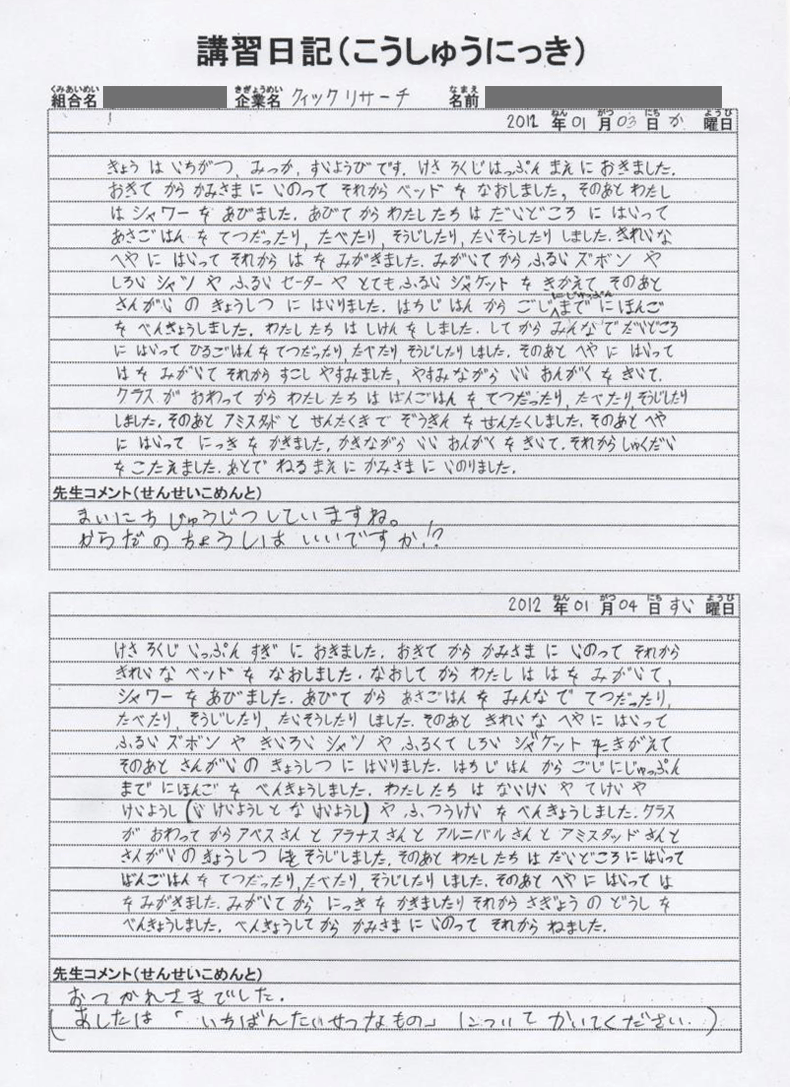 講習日記(こうしゅうにっき)
くみあいめい きぎょうめい なまえ
組合名 企業名 クイックリサーチ 名前
ねん がつ にち ようび
2012 年 01 月 03 日 か 曜日
きょう は いちがつ, みっか, すいようび です. けさ ろくじ はっぷん まえ に おきました.
おきて から かみさま に いのって それから ベッド を なおしました, そのあと わたし
は シャワー を あびました. あびて から わたしたち は だいどころ に はいって
あさごはん を てつだったり, たべたり, そうじしたり, たいそうしたり しました. きれいな
へや に はいって それから は を みがきました. みがいて から ふるい ズボン や
しろい シャツ や ふるい セーター や とても ふるい ジャケット を きがえて そのあと
さんがい の きょうしつ に はいりました. はちじ はん から ごじ にじゅっぷん まで にほんご
を べんきょうしました. わたしたち は しけん を しました. して から みんな で だいどころ
に はいって ひるごはん を てつだったり, たべたり, そうじしたり しました. そのあと へや に はいって
は を みがいて それから すこし やすみました, やすみながら いい おんがく を きいて.
クラス が おわって から わたしたち は ばんごはん を てつだったり, たべたり, そうじしたり
しました. そのあと アミスタッド と せんたくき で ぞうきん を せんたくしました. そのあと へや
に はいって にっき を かきました, かきながら いい おんがく を きいて. それから しゅくだい
を こたえました. あとで ねる まえ に かみさま に いのりました.
先生コメント(せんせいこめんと)
まいにち じゅうじつしていますね。
からだのちょうしは いいですか!?
ねん がつ にち ようび
2012 年 01 月 04 日 すい 曜日
けさ ろくじ いっぷん すぎ に おきました. おきて から かみさま に いのって それから
きれい な ベッド を なおしました. なおして から わたし は は を みがいて,
シャワー を あびました. あびて から あさごはん を みんな で てつだったり,
たべたり, そうじしたり, たいそうしたり しました. そのあと きれい な へや に はいって
ふるい ズボン や きいろい シャツ や ふるくて しろい ジャケット を きがえて
そのあと さんがい の きょうしつ に はいりました. はちじ はん から ごじ にじゅっぷん
まで にほんご を べんきょうしました. わたしたち は ないけい や てけい や
けいようし (い けいようし と な けいようし) や ふつうけい を べんきょうしました. クラス
が おわって から アベス さん と アラナス さん と アルニバル さん と アミスタッド さん と
さんがい の きょうしつ を そうじしました. そのあと わたしたち は だいどころ に はいって
ばんごはん を てつだったり, たべたり, そうじしたり しました. そのあと へや に はいって は
を みがきました. みがいて から にっき を かきましたり それから さぎょう の どうし を
べんきょうしました. べんきょうして から かみさま に いのって それから ねました.
先生コメント(せんせいこめんと)
おつかれさまでした.
(あしたは 「いちばんたいせつなもの」 について かいてください. )